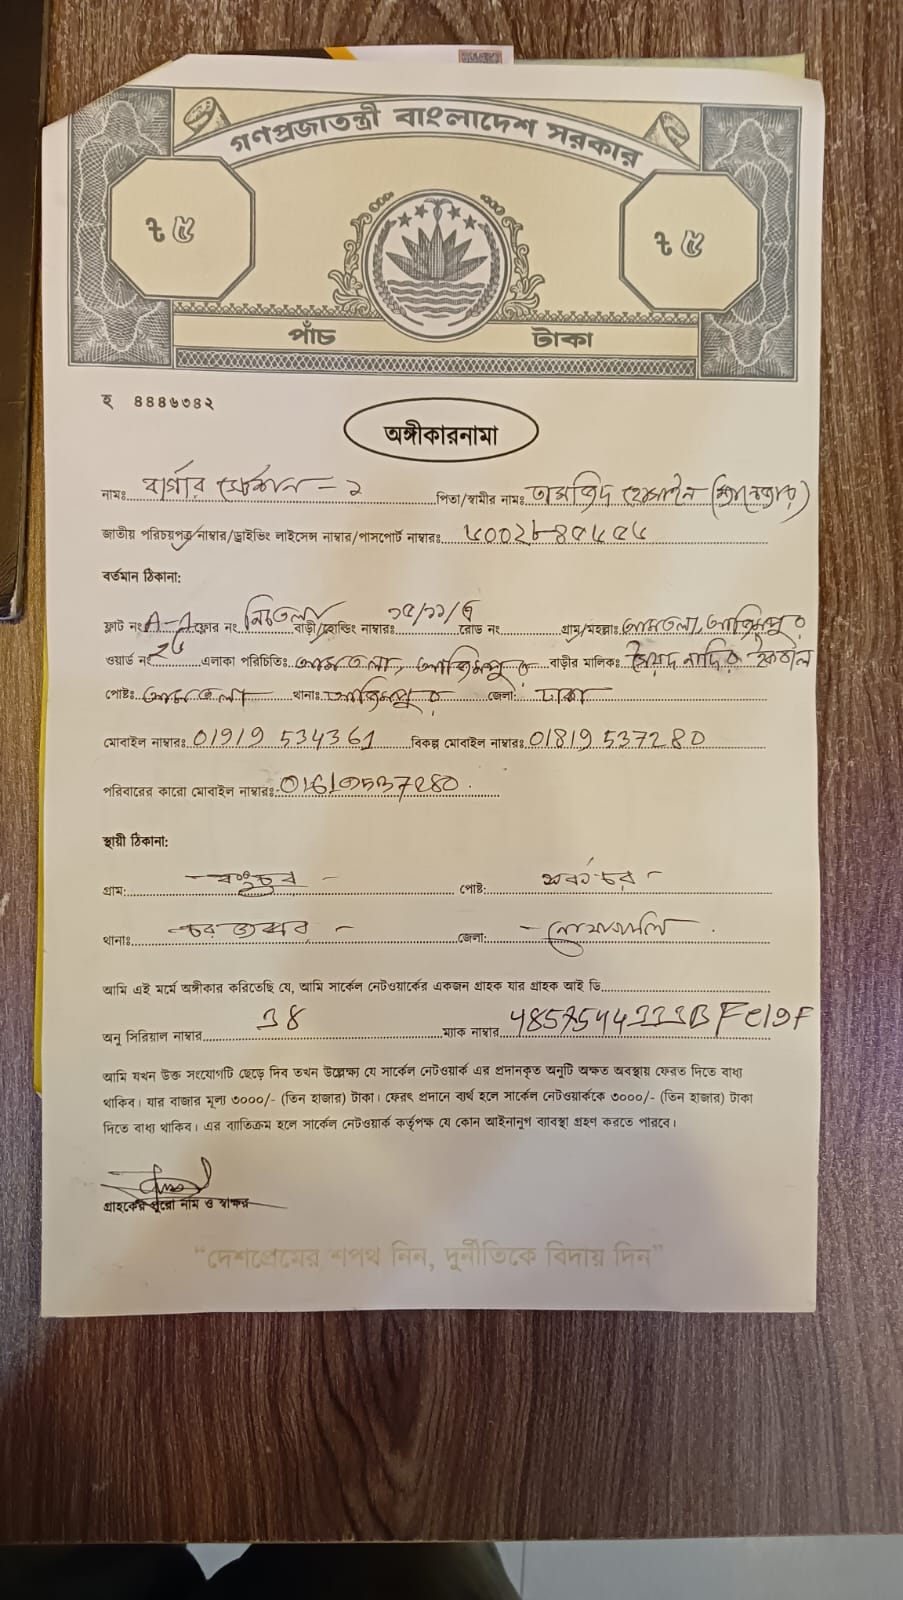 গণপ্রজাতন্ত্রী বাংলাদেশ সরকার
৳ ৫ ৳ ৫
পাঁচ টাকা
হ ৪৪৪৬৩৪২
অঙ্গীকারনামা
নামঃ বার্গার স্টেশন - ২ পিতা/স্বামীর নামঃ হোসাইন (ম্যানেজার)
জাতীয় পরিচয়পত্র নাম্বার/ড্রাইভিং লাইসেন্স নাম্বার/পাসপোর্ট নাম্বারঃ
বর্তমান ঠিকানা:
ফ্লাট নং A-A ফ্লোর নং নিচতলা বাড়ী/হোল্ডিং নাম্বারঃ রোড নং গ্রাম/মহল্লাঃ আমতলা, আজিমপুর
ওয়ার্ড নং ২৬ এলাকা পরিচিতিঃ আমতলা, আজিমপুর বাড়ীর মালিকঃ সৈয়দ নাদির ইকবাল
পোষ্টঃ আমতলা থানাঃ আজিমপুর জেলা: ঢাকা
মোবাইল নাম্বারঃ 01919 534361 বিকল্প মোবাইল নাম্বারঃ 01819 537280
পরিবারের কারো মোবাইল নাম্বারঃ 01619537280
স্থায়ী ঠিকানা:
গ্রাম: পোষ্ট:
থানাঃ চরজব্বর জেলা: নোয়াখালি
আমি এই মর্মে অঙ্গীকার করিতেছি যে, আমি সার্কেল নেটওয়ার্কের একজন গ্রাহক যার গ্রাহক আই ডি
অনু সিরিয়াল নাম্বার 38 ম্যাক নাম্বার
আমি যখন উক্ত সংযোগটি ছেড়ে দিব তখন উল্লেক্ষ্য যে সার্কেল নেটওয়ার্ক এর প্রদানকৃত অনুটি অক্ষত অবস্থায় ফেরত দিতে বাধ্য
থাকিব। যার বাজার মূল্য ৩০০০/- (তিন হাজার) টাকা। ফেরৎ প্রদানে ব্যর্থ হলে সার্কেল নেটওয়ার্ককে ৩০০০/- (তিন হাজার) টাকা
দিতে বাধ্য থাকিব। এর ব্যাতিক্রম হলে সার্কেল নেটওয়ার্ক কর্তৃপক্ষ যে কোন আইনানুগ ব্যাবস্থা গ্রহণ করতে পারবে।
গ্রাহকের পুরো নাম ও স্বাক্ষর
“দেশপ্রেমের শপথ নিন, দুর্নীতিকে বিদায় দিন”